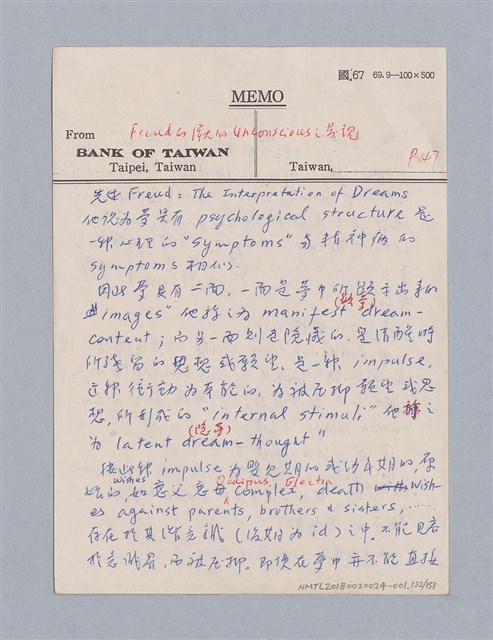 國.67 69.9—100×500
MEMO
From Freud的偉大的Unconscious之發現
BANK OF TAIWAN
Taipei, Taiwan Taiwan, P.47
先由 Freud: The Interpretation of Dreams
他認為夢具有 psychological structure 是
一種心理的"symptoms"與精神病的
symptoms 相似.
因此夢具有二面,一面是夢中所顯示出來的
"images"他稱之為 manifest (顯夢) dream-
content; 而另一面則是隱藏的.是清醒時
所殘留的思想或願望.是一種 impulse,
這種衝動為本能的,為被壓抑願望或思
想,所形成的"internal stimuli"他稱之
為 latent (隱夢) dream-thought"
按此種 impulse 為嬰兒期的或幼年期的,原
始的,如 wishes 戀父戀母 Oedipus, Electra complex, death wish-
es against parents, brothers & sisters,……
存在於其潛意識(後期為id)之中.不能見容
於意識界,而被壓抑.即使在夢中亦不能直接
NMTL20180020024-001.132/151